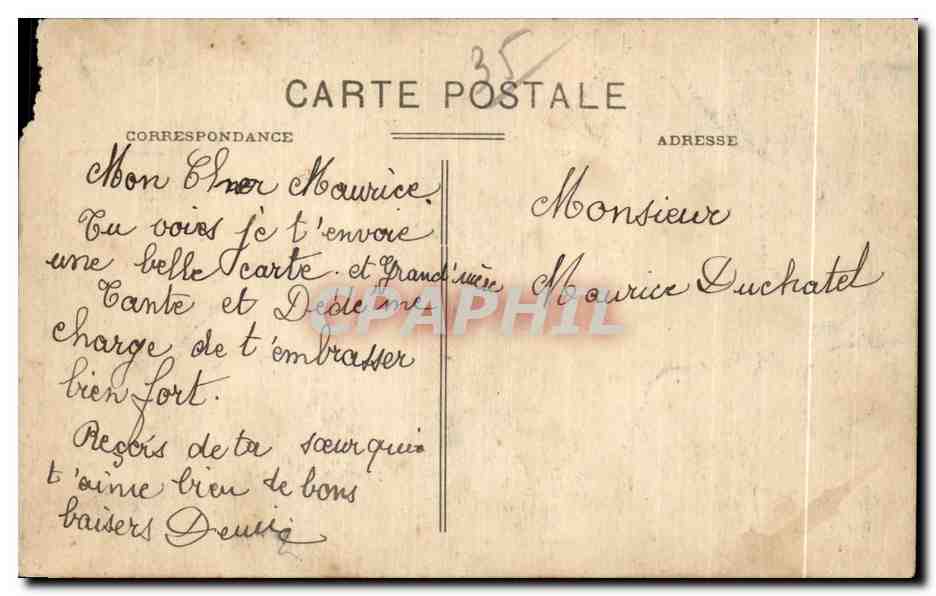 35
CARTE POSTALE
CORRESPONDANCE
ADRESSE
Mon Cher Maurice.
Tu voies je t'envoie
une belle carte. et Grand'mère
Tante et Dédé me
charge de t'embrasser
bien fort.
Reçois de ta sœur qui
t'aime bien de bons
baisers Denise
Monsieur
Maurice Duchatel
CPAPHIL